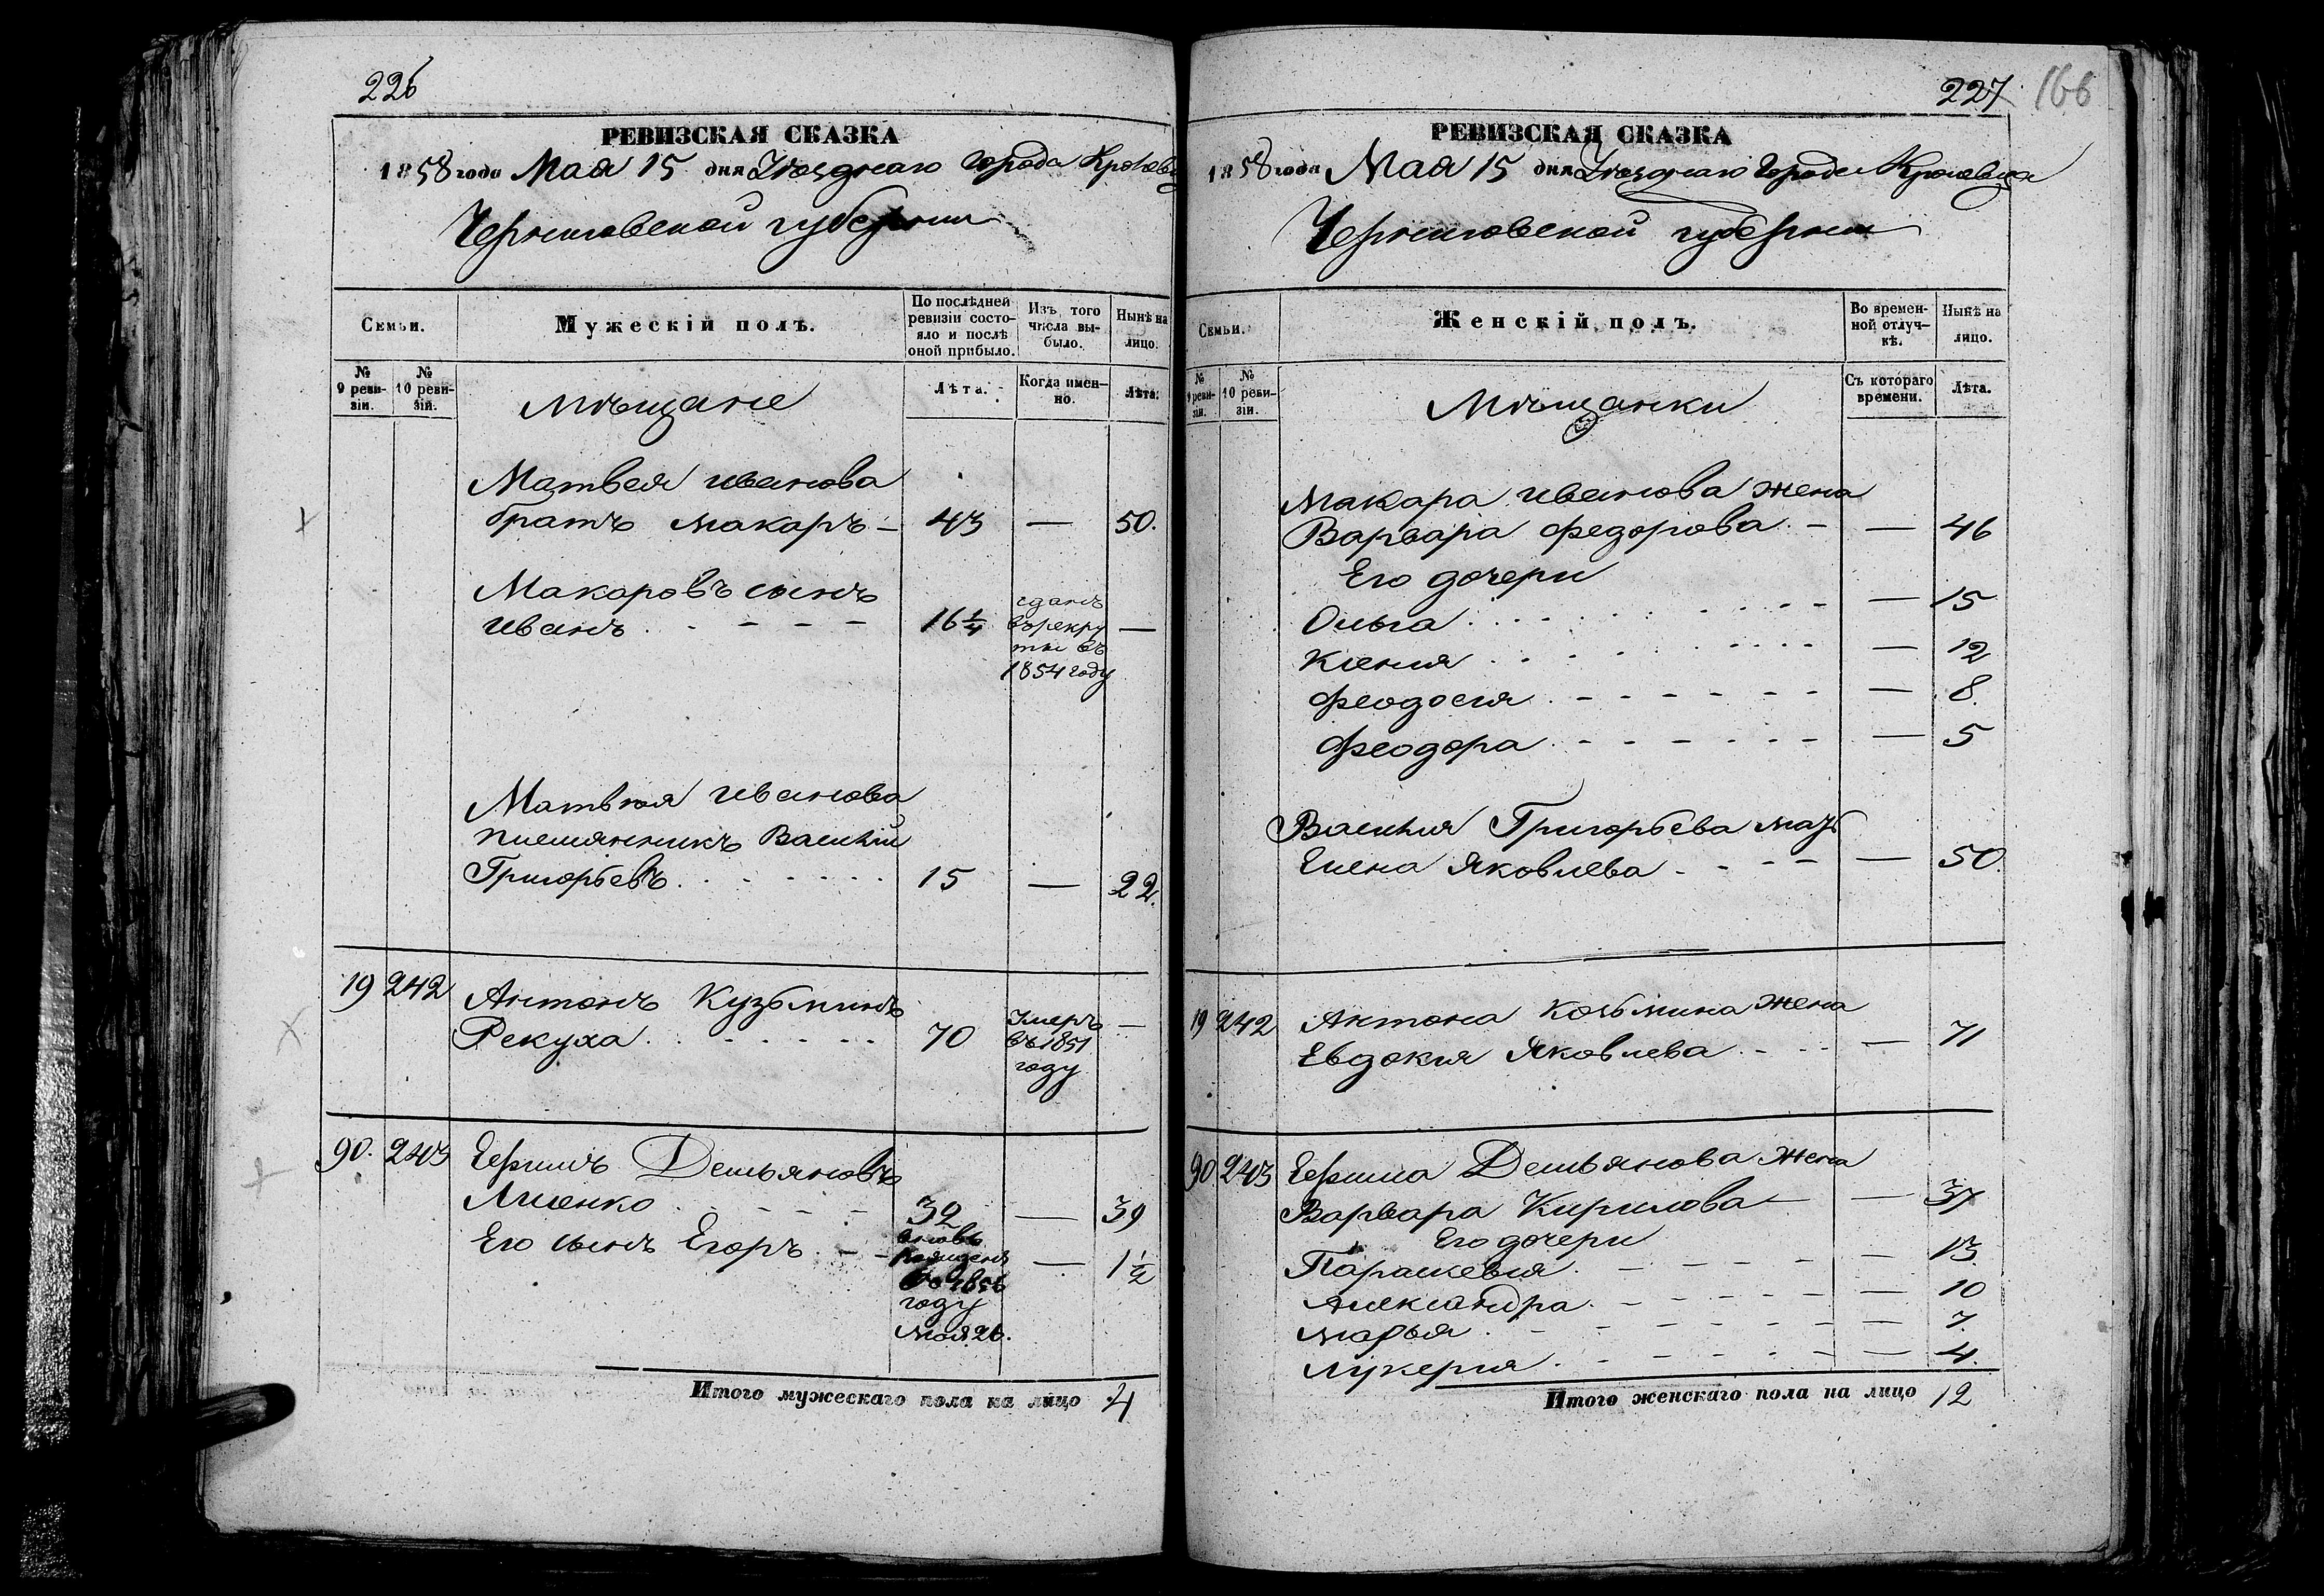 226
РЕВИЗСКАЯ СКАЗКА
1858 года Мая 15 дня Уезднаго города Кролевца
Черниговской губернии
Семьи.
Мужескій полъ.
По послѣдней ревизіи состояло и послѣ оной прибыло.
Изъ того числа выбыло.
Нынѣ на лицо.
№ 9 ревизіи.
№ 10 ревизіи.
Мѣщане
Лѣта.
Когда именно.
Лѣта.
Матвея Иванова
братъ Макаръ — 43 — 50.
Макаровъ сынъ
Иванъ 16 1/4 —
сданъ
въ рекру
ты въ
1854 году
Матвѣя Иванова
племянникъ Василій
Григорьевъ 15 — 22.
19 242 Антонъ Кузьминъ
Рекуха 70 —
Умеръ
въ 1851
году
90. 243 Ефимъ Демьяновъ
Лисенко 32 — 39
Его сынъ Егоръ — 1 1/2
вновь
рожденъ
1856
году
Мая 26.
Итого мужескаго пола на лицо 4
227
166
РЕВИЗСКАЯ СКАЗКА
1858 года Мая 15 дня Уезднаго города Кролевца
Черниговской губернии
Семьи.
Женскій полъ.
Во временной отлучкѣ.
Нынѣ на лицо.
№ 9 ревизіи.
№ 10 ревизіи.
Мѣщанки
Съ котораго времени.
Лѣта.
Макара Иванова жена
Варвара Федорова — — 46
Его дочери
Ольга — 15
Ксения — 12
Феодосия — 8.
Феодора — 5
Василия Григорьева мать
Елена Яковлева — 50.
19 242 Антона Козьмина жена
Евдокия Яковлева — 71
90 243 Ефима Демьянова жена
Варвара Кирилова — — 37
Его дочери
Параскевия — 13
Александра — 10
Марья — 7.
Лукерия — 4.
Итого женскаго пола на лицо 12